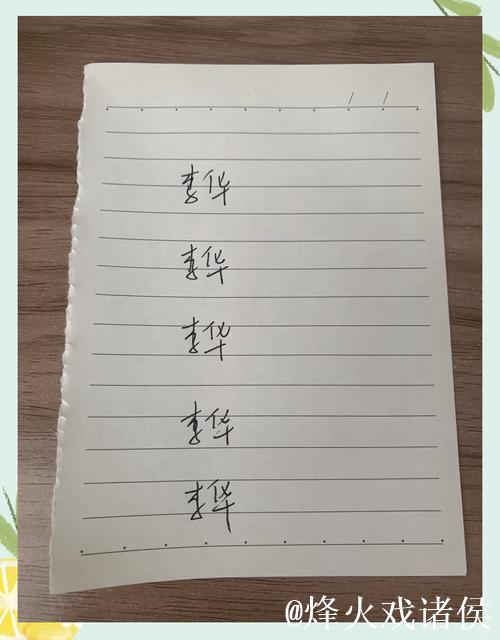 / /
李华
李华
李华
李华
李华
@烽火戏诸侯